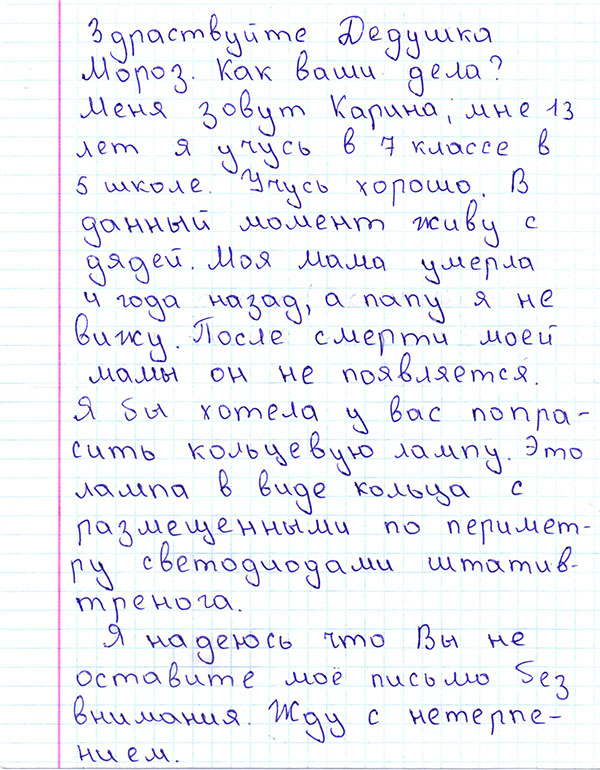 Здраствуйте Дедушка
Мороз. Как ваши дела?
Меня зовут Карина, мне 13
лет я учусь в 7 классе в
5 школе. Учусь хорошо. В
данный момент живу с
дядей. Моя мама умерла
4 года назад, а папу я не
вижу. После смерти моей
мамы он не появляется.
Я бы хотела у вас попра-
сить кольцевую лампу. Это
лампа в виде кольца с
размещенными по перимет-
ру светодиодами штатив-
тренога.
Я надеюсь что Вы не
оставите моё письмо без
внимания. Жду с нетерпе-
нием.